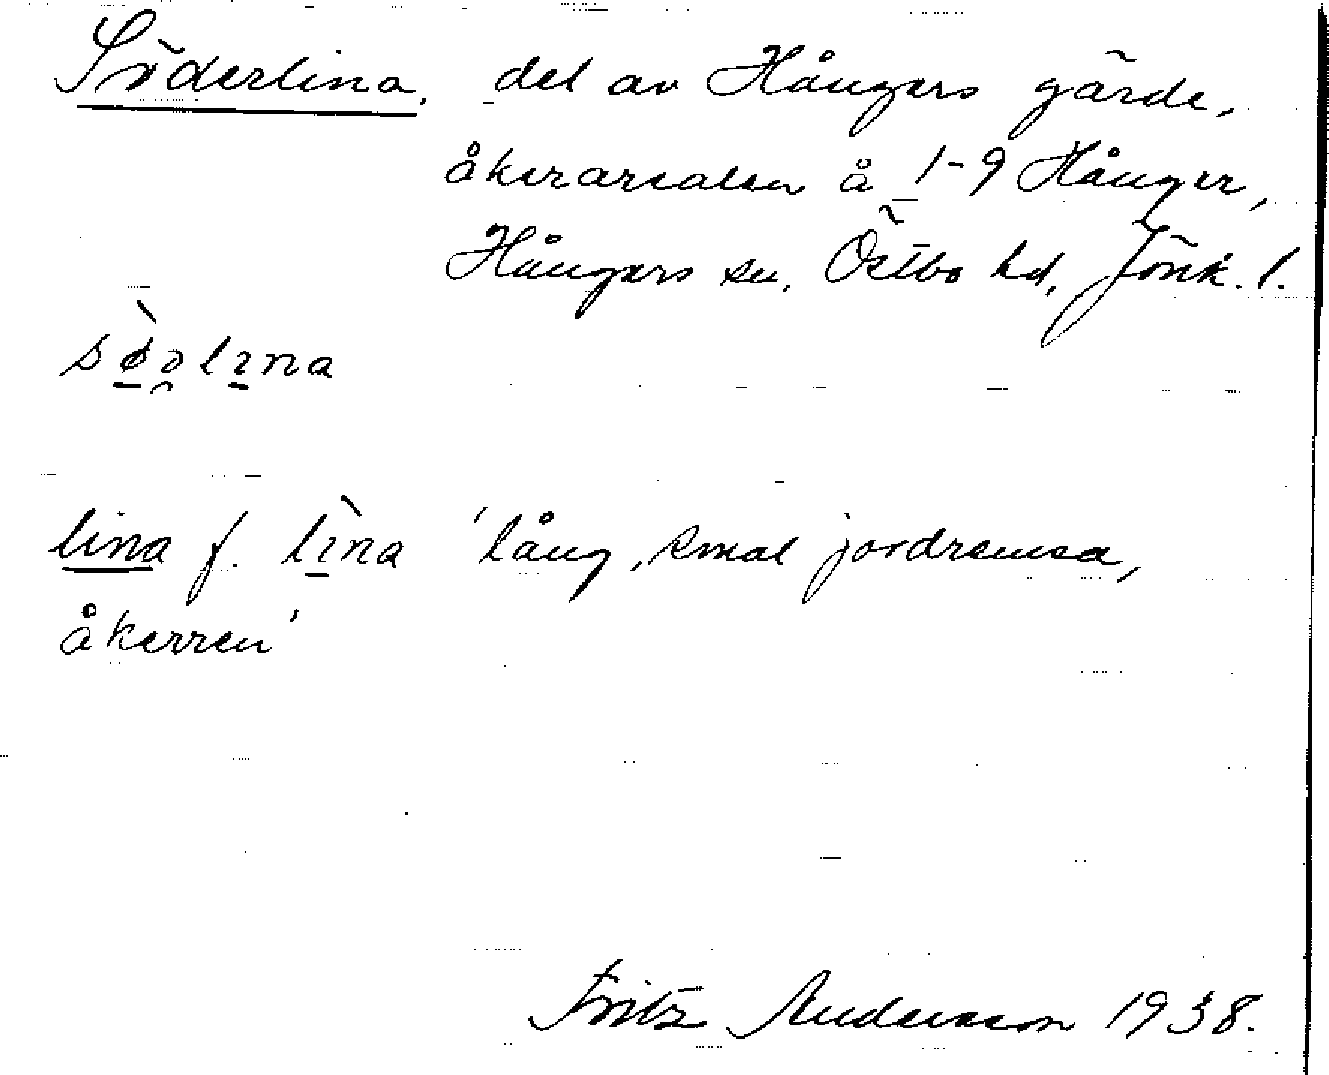 Söderlina, del av Hångers gärde,
åkerarealen å 1-9 Hånger,
Hångers sn, Östbo hd, Jönk. l.
sø̀əlɪna
lina f. lɪ̀na 'lång, smal jordremsa,
åkerren'
Fritz Andersson 1938.